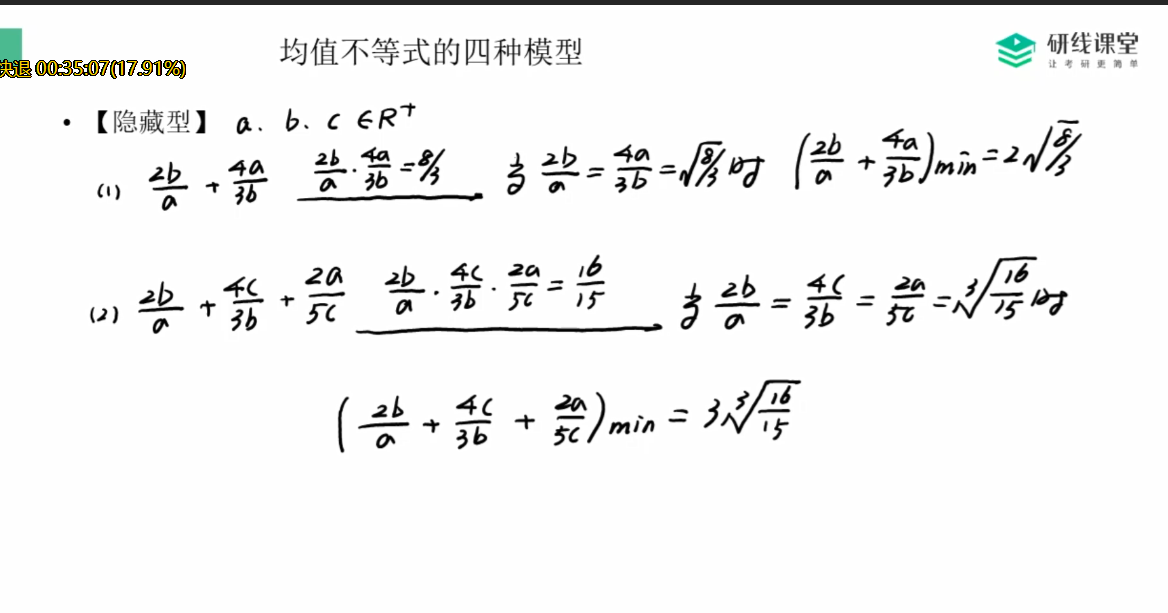 均值不等式的四种模型
研线课堂
让考研更简单
快退 00:35:07(17.91%)
• 【隐藏型】 a. b. c ∈R⁺
(1) 2b/a + 4a/3b 2b/a · 4a/3b = 8/3 当 2b/a = 4a/3b = √(8/3) 时 (2b/a + 4a/3b)min = 2√(8/3)
(2) 2b/a + 4c/3b + 2a/5c 2b/a · 4c/3b · 2a/5c = 16/15 当 2b/a = 4c/3b = 2a/5c = ³√(16/15) 时
(2b/a + 4c/3b + 2a/5c)min = 3 ³√(16/15)